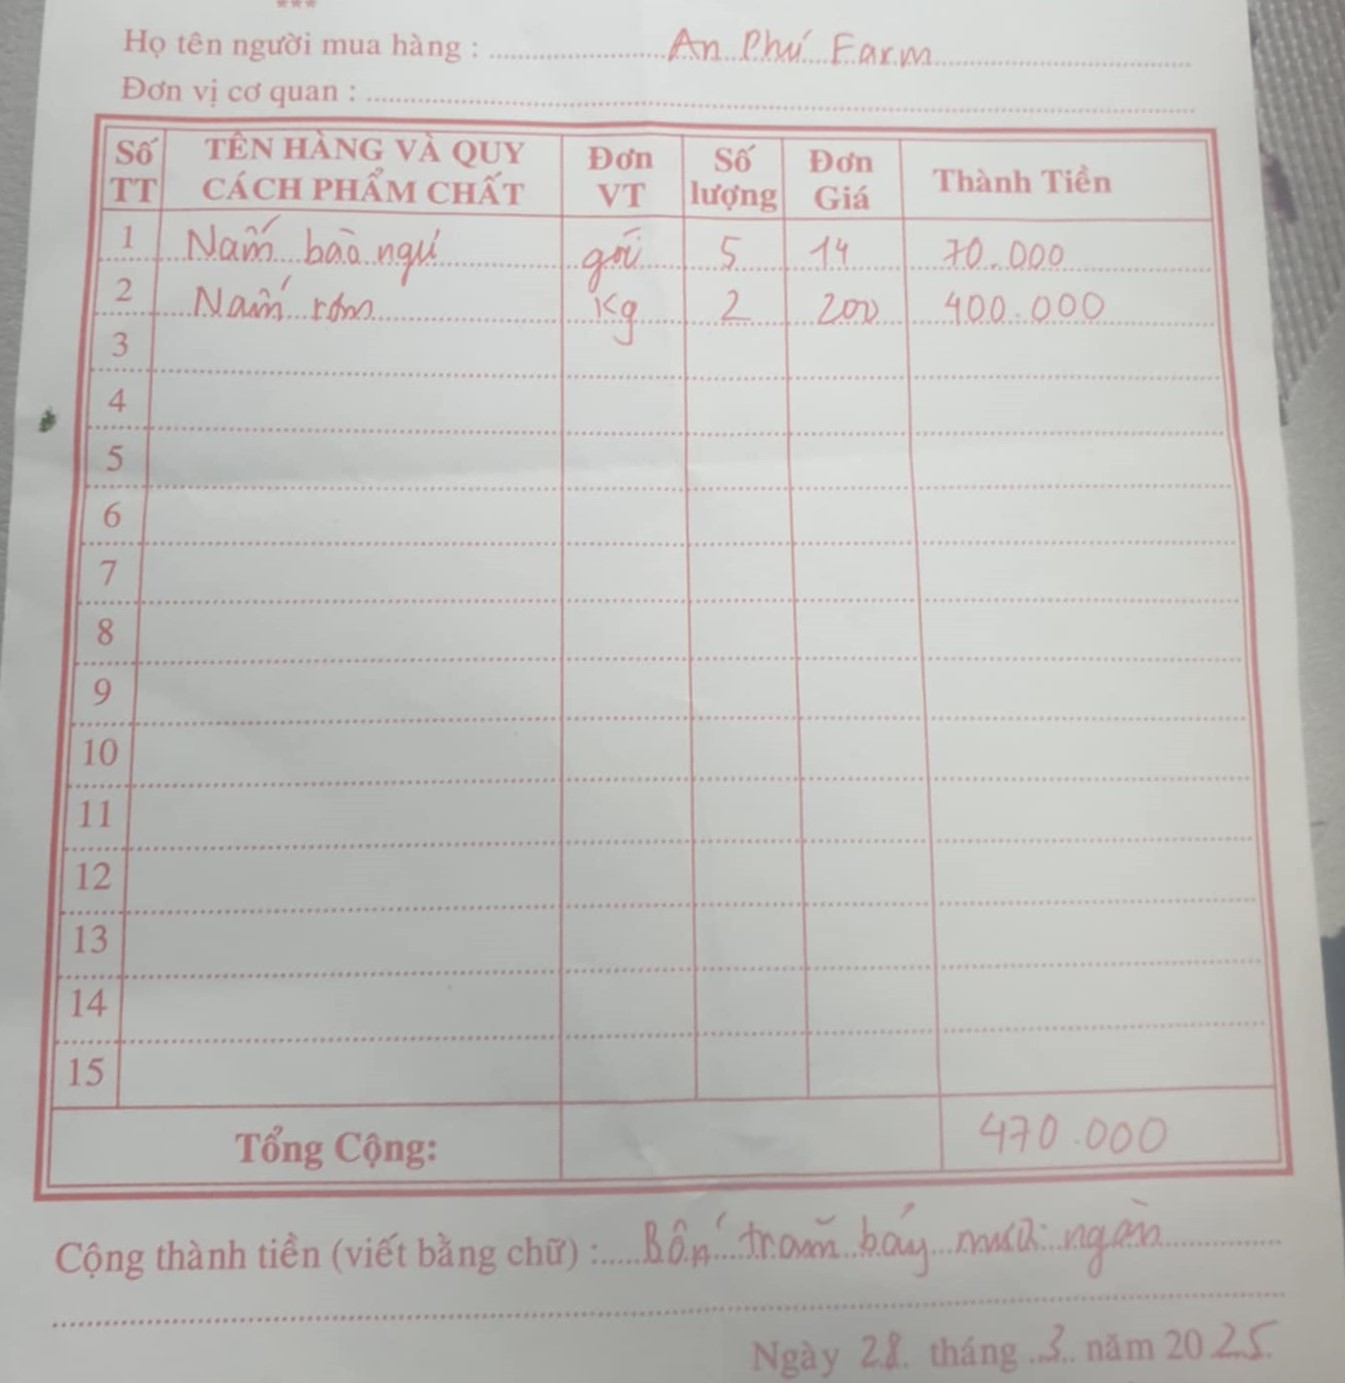 ***
Họ tên người mua hàng : An Phú Farm
Đơn vị cơ quan :
Số TT TÊN HÀNG VÀ QUY CÁCH PHẨM CHẤT Đơn VT Số lượng Đơn Giá Thành Tiền
1 Nấm bào ngư gói 5 14 70.000
2 Nấm rơm Kg 2 200 400.000
3
4
5
6
7
8
9
10
11
12
13
14
15
Tổng Cộng: 470.000
Cộng thành tiền (viết bằng chữ) : Bốn trăm bảy mươi ngàn
Ngày 28 tháng 3 năm 2025